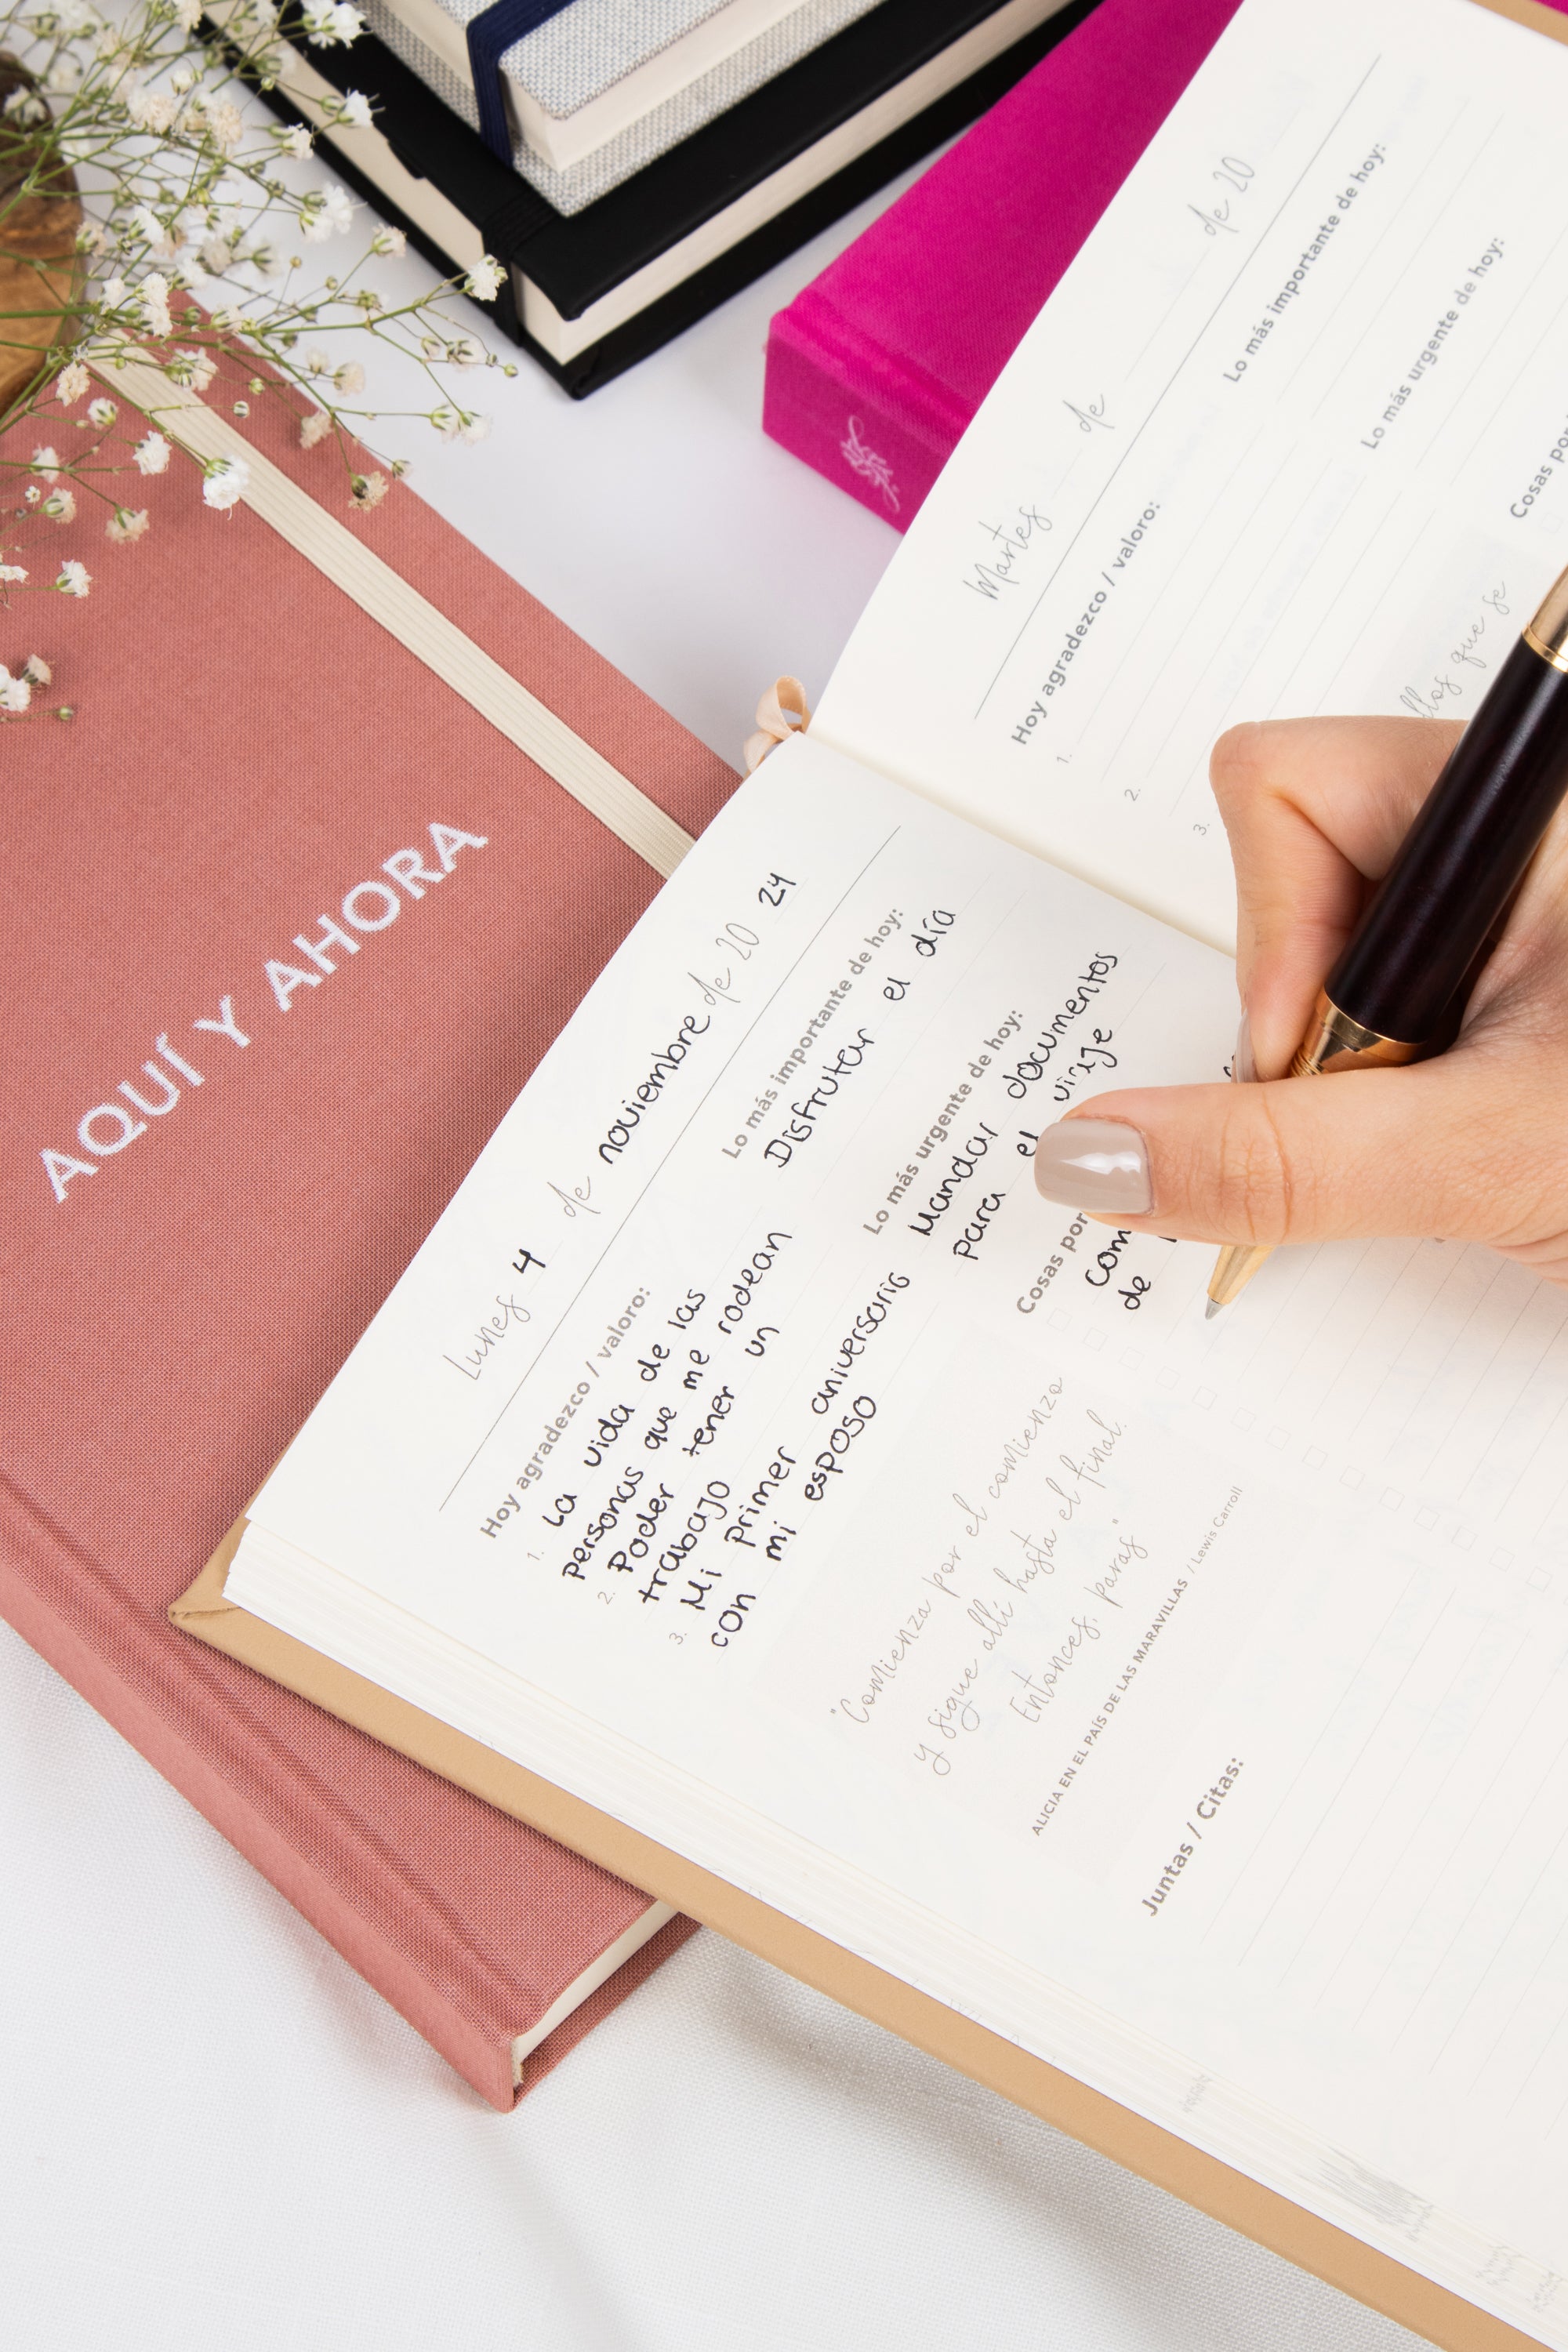 AQUÍ Y AHORA
Lunes 4 de noviembre de 20 24
Hoy agradezco / valoro:
1. La vida de las
personas que me rodean
2. Poder tener un
trabajo
3. Mi primer aniversario
con mi esposo
Lo más importante de hoy:
Disfrutar el día
Lo más urgente de hoy:
Mandar documentos
para el
Cosas por
com
de
"Comienza por el comienzo
y sigue allí hasta el final.
Entonces, paras"
ALICIA EN EL PAÍS DE LAS MARAVILLAS / Lewis Carroll
Juntas / Citas:
Martes de de 20
Hoy agradezco / valoro:
1.
2.
3.
Lo más importante de hoy:
Lo más urgente de hoy:
Cosas por
que se